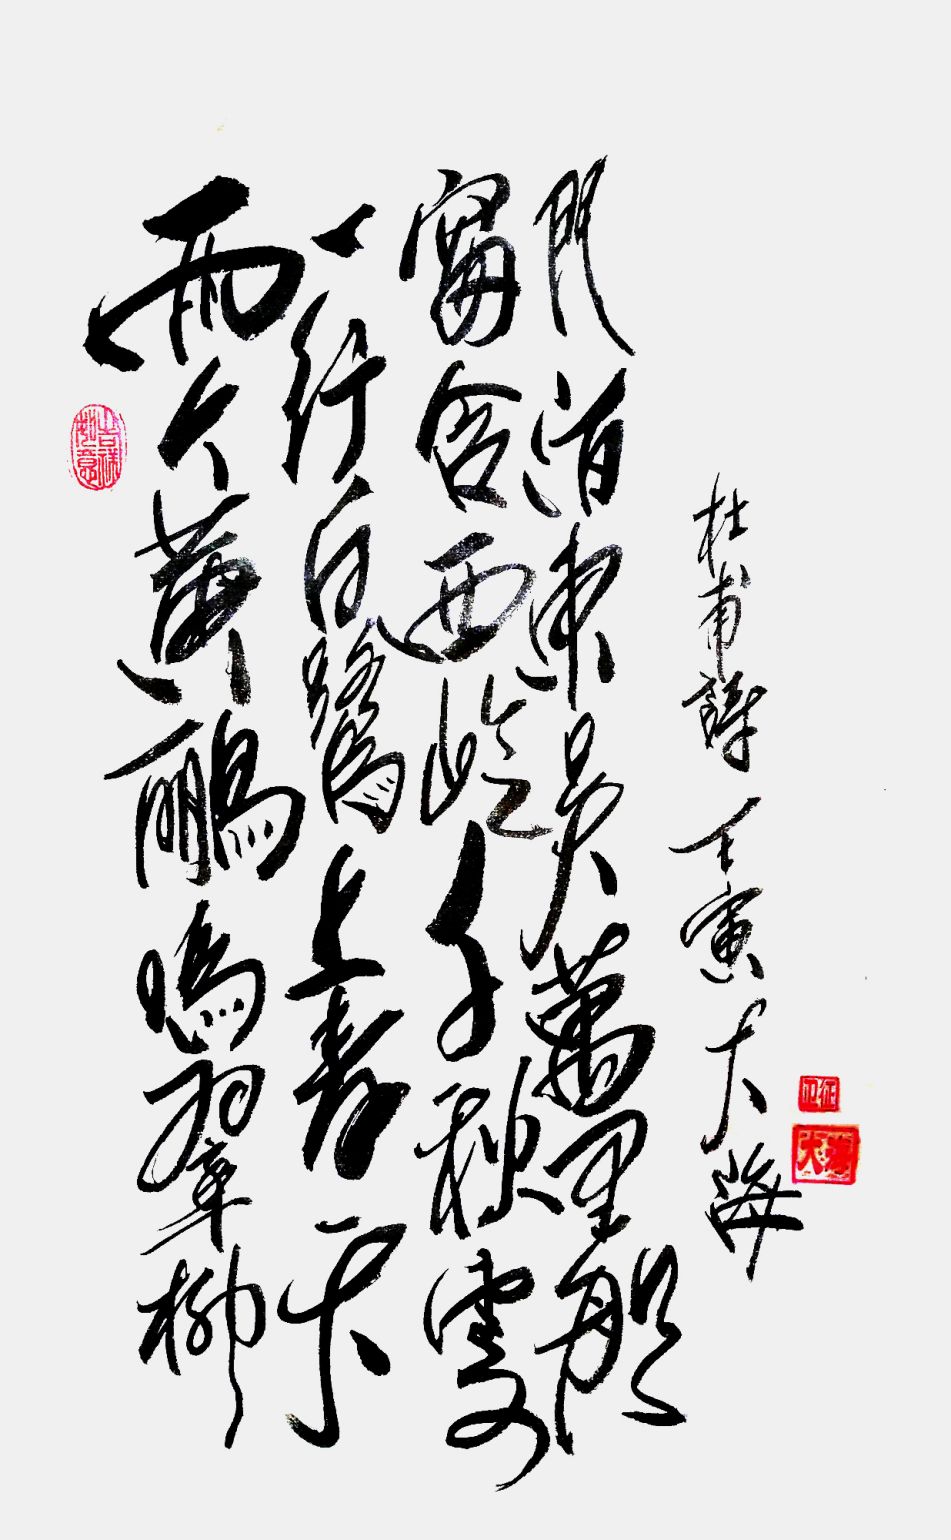 兩个黃鸝鳴翠柳
一行白鷺上青天
窗含西岭千秋雪
門泊東吳萬里船
杜甫詩 壬寅 大海
吉祥如意
大海